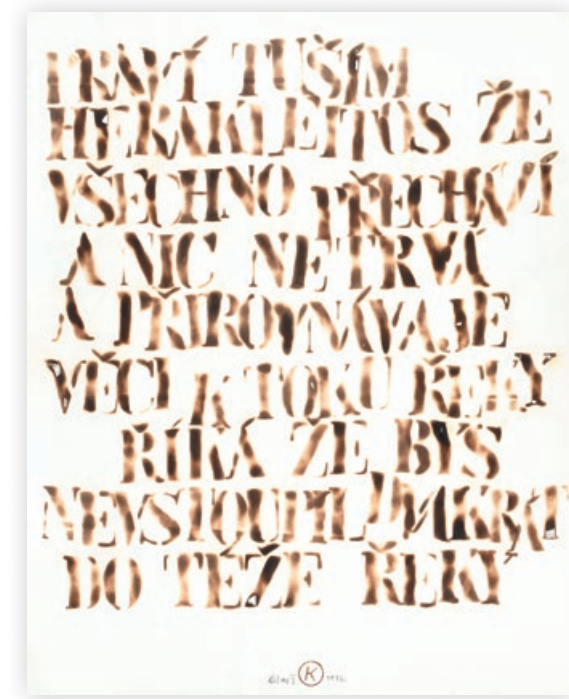 PRAVÍ TUŠÍM
HERAKLEITOS ŽE
VŠECHNO PŘECHÁZÍ
A NIC NETRVÁ
A PŘIROVNÁVAJE
VĚCI K TOKU ŘEKY
ŘÍKÁ ŽE BYS
NEVSTOUPIL DVAKRÁT
DO TÉŽE ŘEKY
K